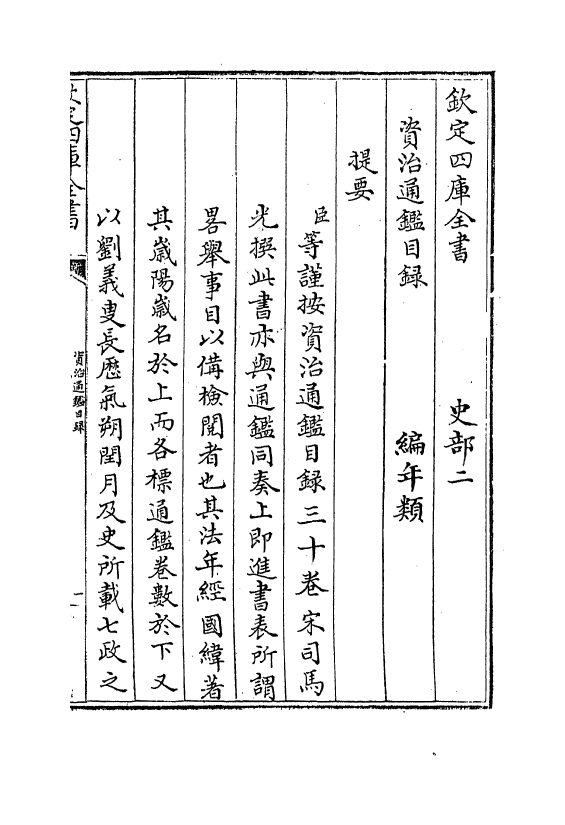 欽定四庫全書　史部二
資治通鑑目録　編年類
提要
臣等謹按資治通鑑目録三十卷宋司馬
光撰此書亦與通鑑同奏上即進書表所謂
畧舉事目以備檢閲者也其法年經國緯著
其嵗陽嵗名於上而各標通鑑卷數於下又
以劉義叟長厯氣朔閏月及史所載七政之
欽定四庫全書
資治通鑑目録
一